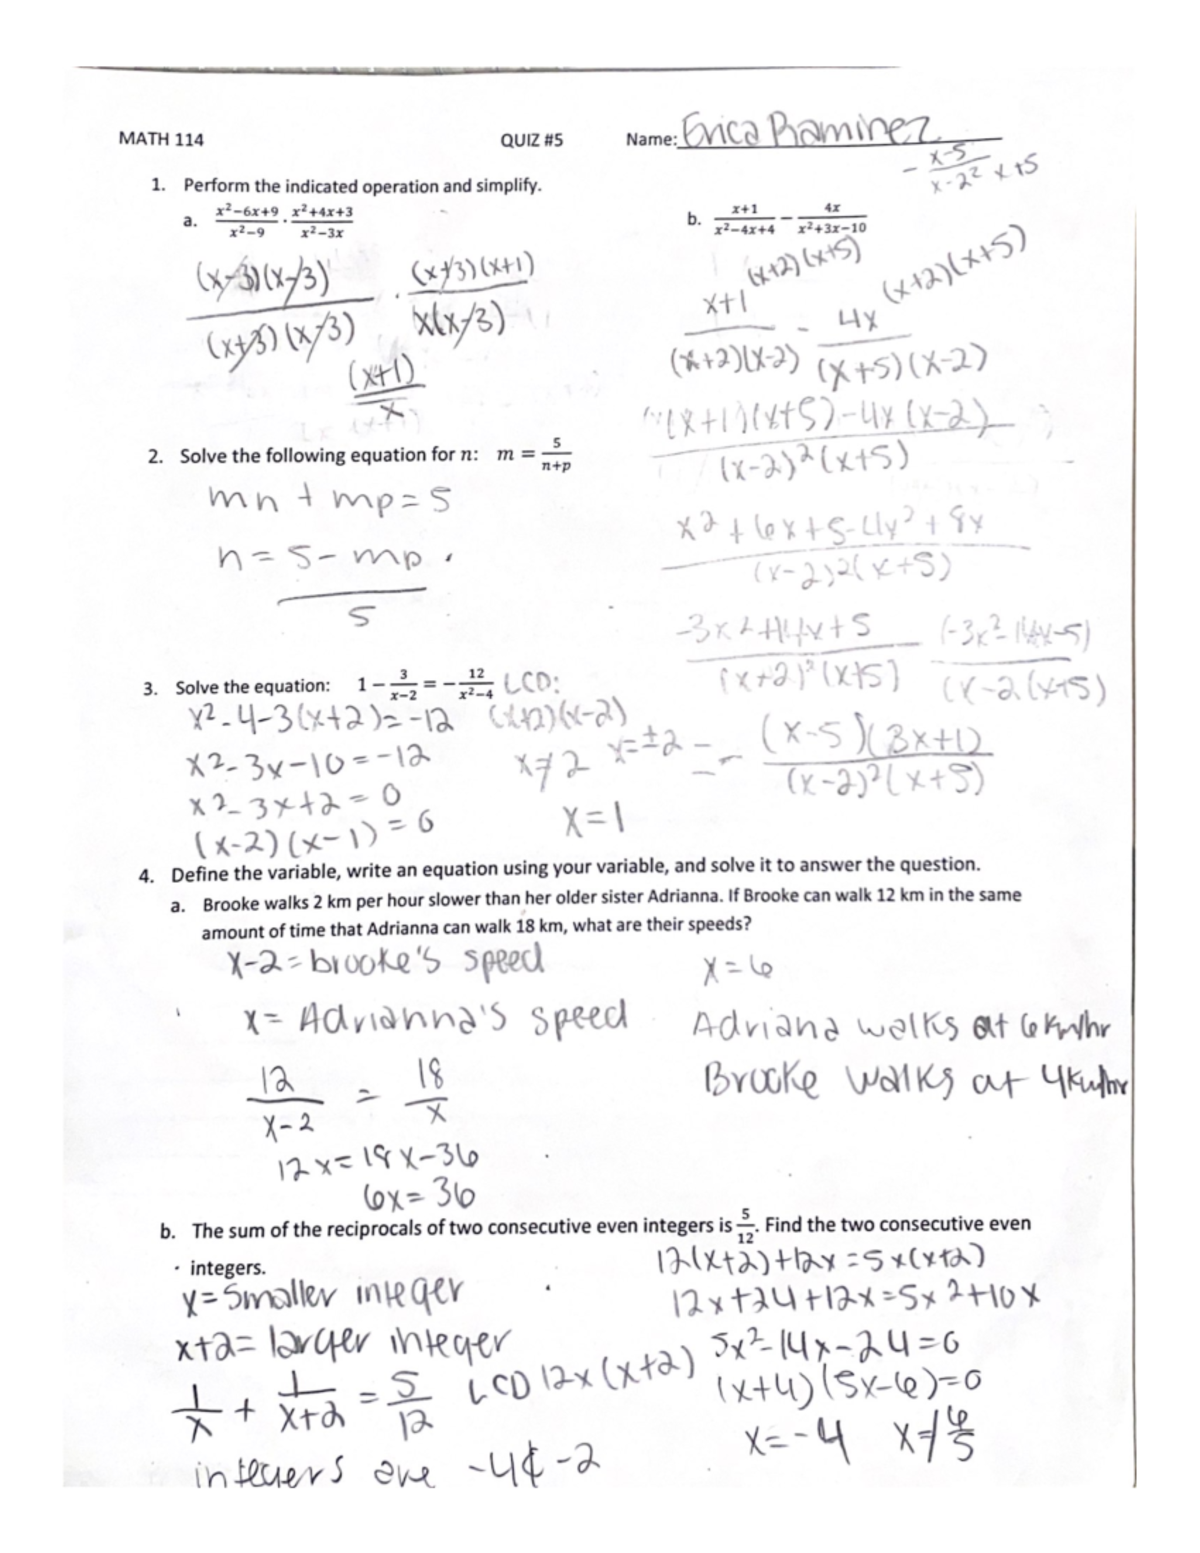 MATH 114 QUIZ #5 Name: Erica Ramirez
- (x-5)/(x-2)² x+5
1. Perform the indicated operation and simplify.
a. (x²−6x+9)/(x²−9) · (x²+4x+3)/(x²−3x)
(x-3)(x-3)/(x+3)(x-3) · (x+3)(x+1)/x(x-3)
(x+1)/x
b. (x+1)/(x²−4x+4) − 4x/(x²+3x−10)
(x+2)(x+5) (x+2)(x+5)
(x+1)/(x+2)(x-2) - 4x/(x+5)(x-2)
(x+1)(x+5)-4x(x-2)/(x-2)²(x+5)
x²+6x+5-4x²+8x/(x-2)²(x+5)
-3x²+14x+5/(x+2)²(x+5) (-3x²-14x-5)/(x-2(x+5)
= - (x-5)(3x+1)/(x-2)²(x+5)
2. Solve the following equation for n: m = 5/(n+p)
mn + mp = 5
n = 5 - mp/5
3. Solve the equation: 1 − 3/(x−2) = − 12/(x²−4) LCD:
x²-4-3(x+2)=-12 (x+2)(x-2)
x²-3x-10=-12 x≠2 x=±2
x²-3x+2=0
(x-2)(x-1)=0 x=1
4. Define the variable, write an equation using your variable, and solve it to answer the question.
a. Brooke walks 2 km per hour slower than her older sister Adrianna. If Brooke can walk 12 km in the same
amount of time that Adrianna can walk 18 km, what are their speeds?
x-2=brooke's speed
x= Adrianna's speed
12/(x-2) = 18/x
12x=18x-36
6x=36
x=6
Adriana walks at 6km/hr
Brooke walks at 4km/hr
b. The sum of the reciprocals of two consecutive even integers is 5/12. Find the two consecutive even
integers.
x=smaller integer
x+2=larger integer
1/x + 1/(x+2) = 5/12 LCD 12x(x+2)
12(x+2)+12x=5x(x+2)
12x+24+12x=5x²+10x
5x²-14x-24=0
(x+4)(5x-6)=0
x=-4 x≠6/5
integers are -4 & -2